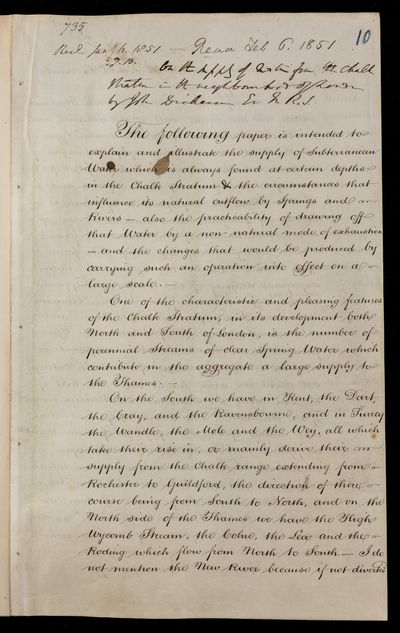 735
10
Read Feb 6. 1851
On the supply of Water from the Chalk
Stratum in the neighbourhood of London
by John Dickinson Esq F.R.S.
The following paper is intended to
explain and illustrate the supply of Subterranean
Water which is always found at certain depths
in the Chalk Stratum & the circumstances that
influence its natural outflow by Springs and
Rivers — also the practicability of drawing off
that Water by a non-natural mode of exhaustion
— and the changes that would be produced by
carrying such an operation into effect on a
large scale. —
One of the characteristic and pleasing features
of the Chalk Stratum, in its development both
North and South of London, is the number of
perennial Streams of clear Spring Water which
contribute in the aggregate a large supply to
the Thames. —
On the South we have in Kent, the Dart,
the Cray, and the Ravensbourne, and in Surrey
the Wandle, the Mole and the Wey, all which
take their rise in, or mainly derive their
supply from the Chalk range extending from
Rochester to Guildford, the direction of their
course being from South to North, and on the
North side of the Thames we have the High
Wycomb Stream, the Colne, the Lea and the
Roding which flow from North to South. — I do
not mention the New River because if not diverted